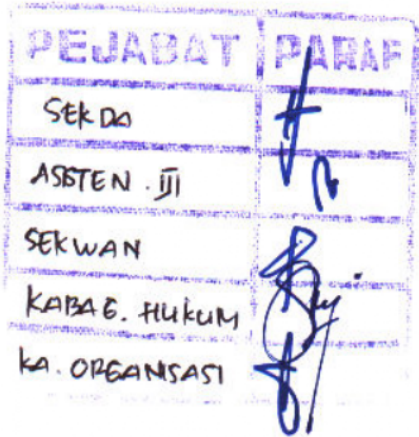 PEJABAT PARAF
SEKDA
ASISTEN . III
SEKWAN
KABAG. HUKUM
KA. ORGANISASI